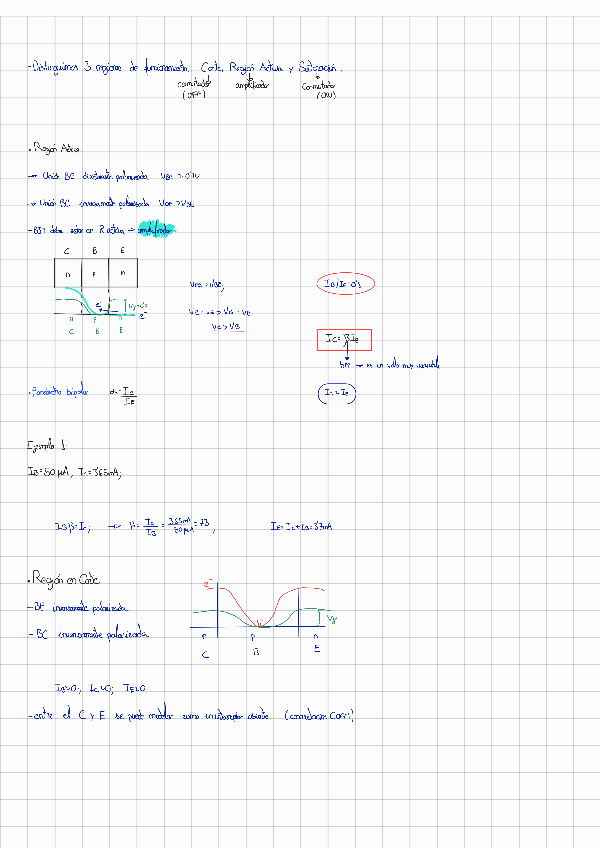 - Distinguimos 3 regiones de funcionamiento. Corte, Región Activa y Saturación.
conmutador amplificador conmutador
(OFF) (ON)
• Región Activa
→ Unión BE directamente polarizada VBE > 0'7V
→ Unión BC inversamente polarizada VCE > VBE
- BJT debe estar en R activa → amplificador
C B E
n P n
e⁻
n P n
C B E
VCE > VBE;
VC - VE > VB - VE
VC > VB
IC = β IB
hFE → es un valor muy variable
IC ≈ IE
• Parámetro bipolar α = IC / IE
Ejemplo 1:
IB = 50 μA, IC = 3'65mA;
IB β = IC; → β = IC / IB = 3'65mA / 50 μA = 73; IE = IC + IB = 3'7mA
• Región en Corte
- BE inversamente polarizada
- BC inversamente polarizada
e⁻
n P n
C B E
IB ≈ 0; IC ≈ 0; IE ≈ 0
- entre el C y E se puede modelar como un interruptor abierto (conmutación (OFF))